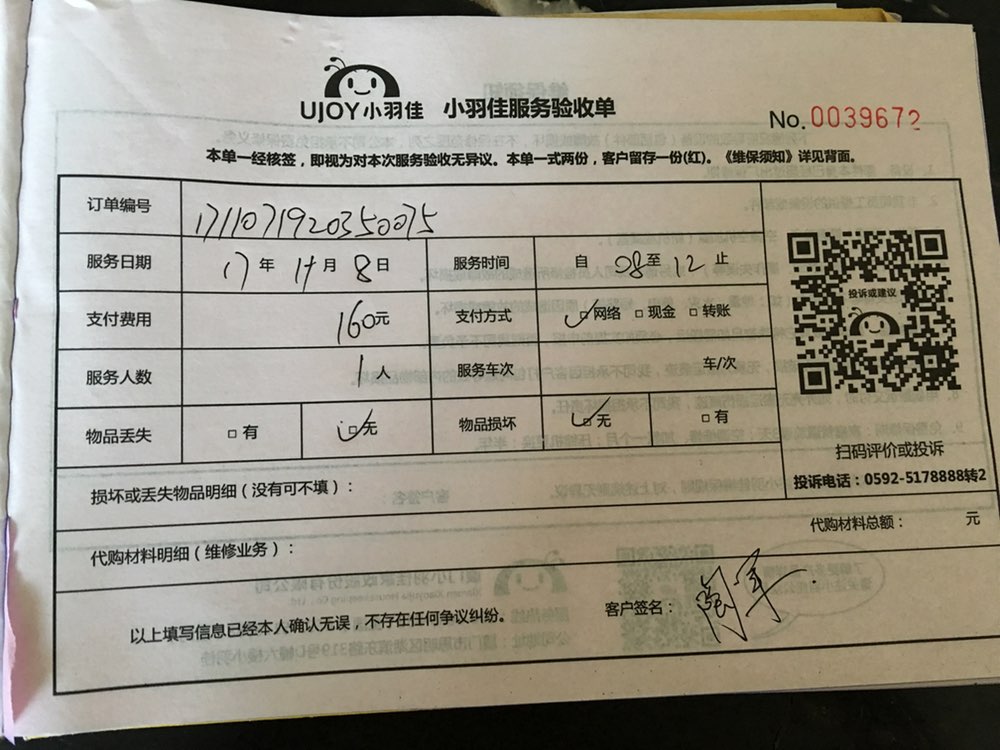 UJOY小羽佳 小羽佳服务验收单
No. 0039672
本单一经核签，即视为对本次服务验收无异议。本单一式两份，客户留存一份(红)。《维保须知》详见背面。
订单编号 1711071920350075
服务日期 17年11月8日 服务时间 自08至12止
支付费用 160元 支付方式 ☑网络 □现金 □转账
服务人数 1人 服务车次 车/次
物品丢失 □有 ☑无 物品损坏 ☑无 □有
投诉或建议
扫码评价或投诉
投诉电话：0592-5178888转2
损坏或丢失物品明细（没有可不填）：
代购材料总额： 元
代购材料明细（维修业务）：
客户签名：
以上填写信息已经本人确认无误，不存在任何争议纠纷。